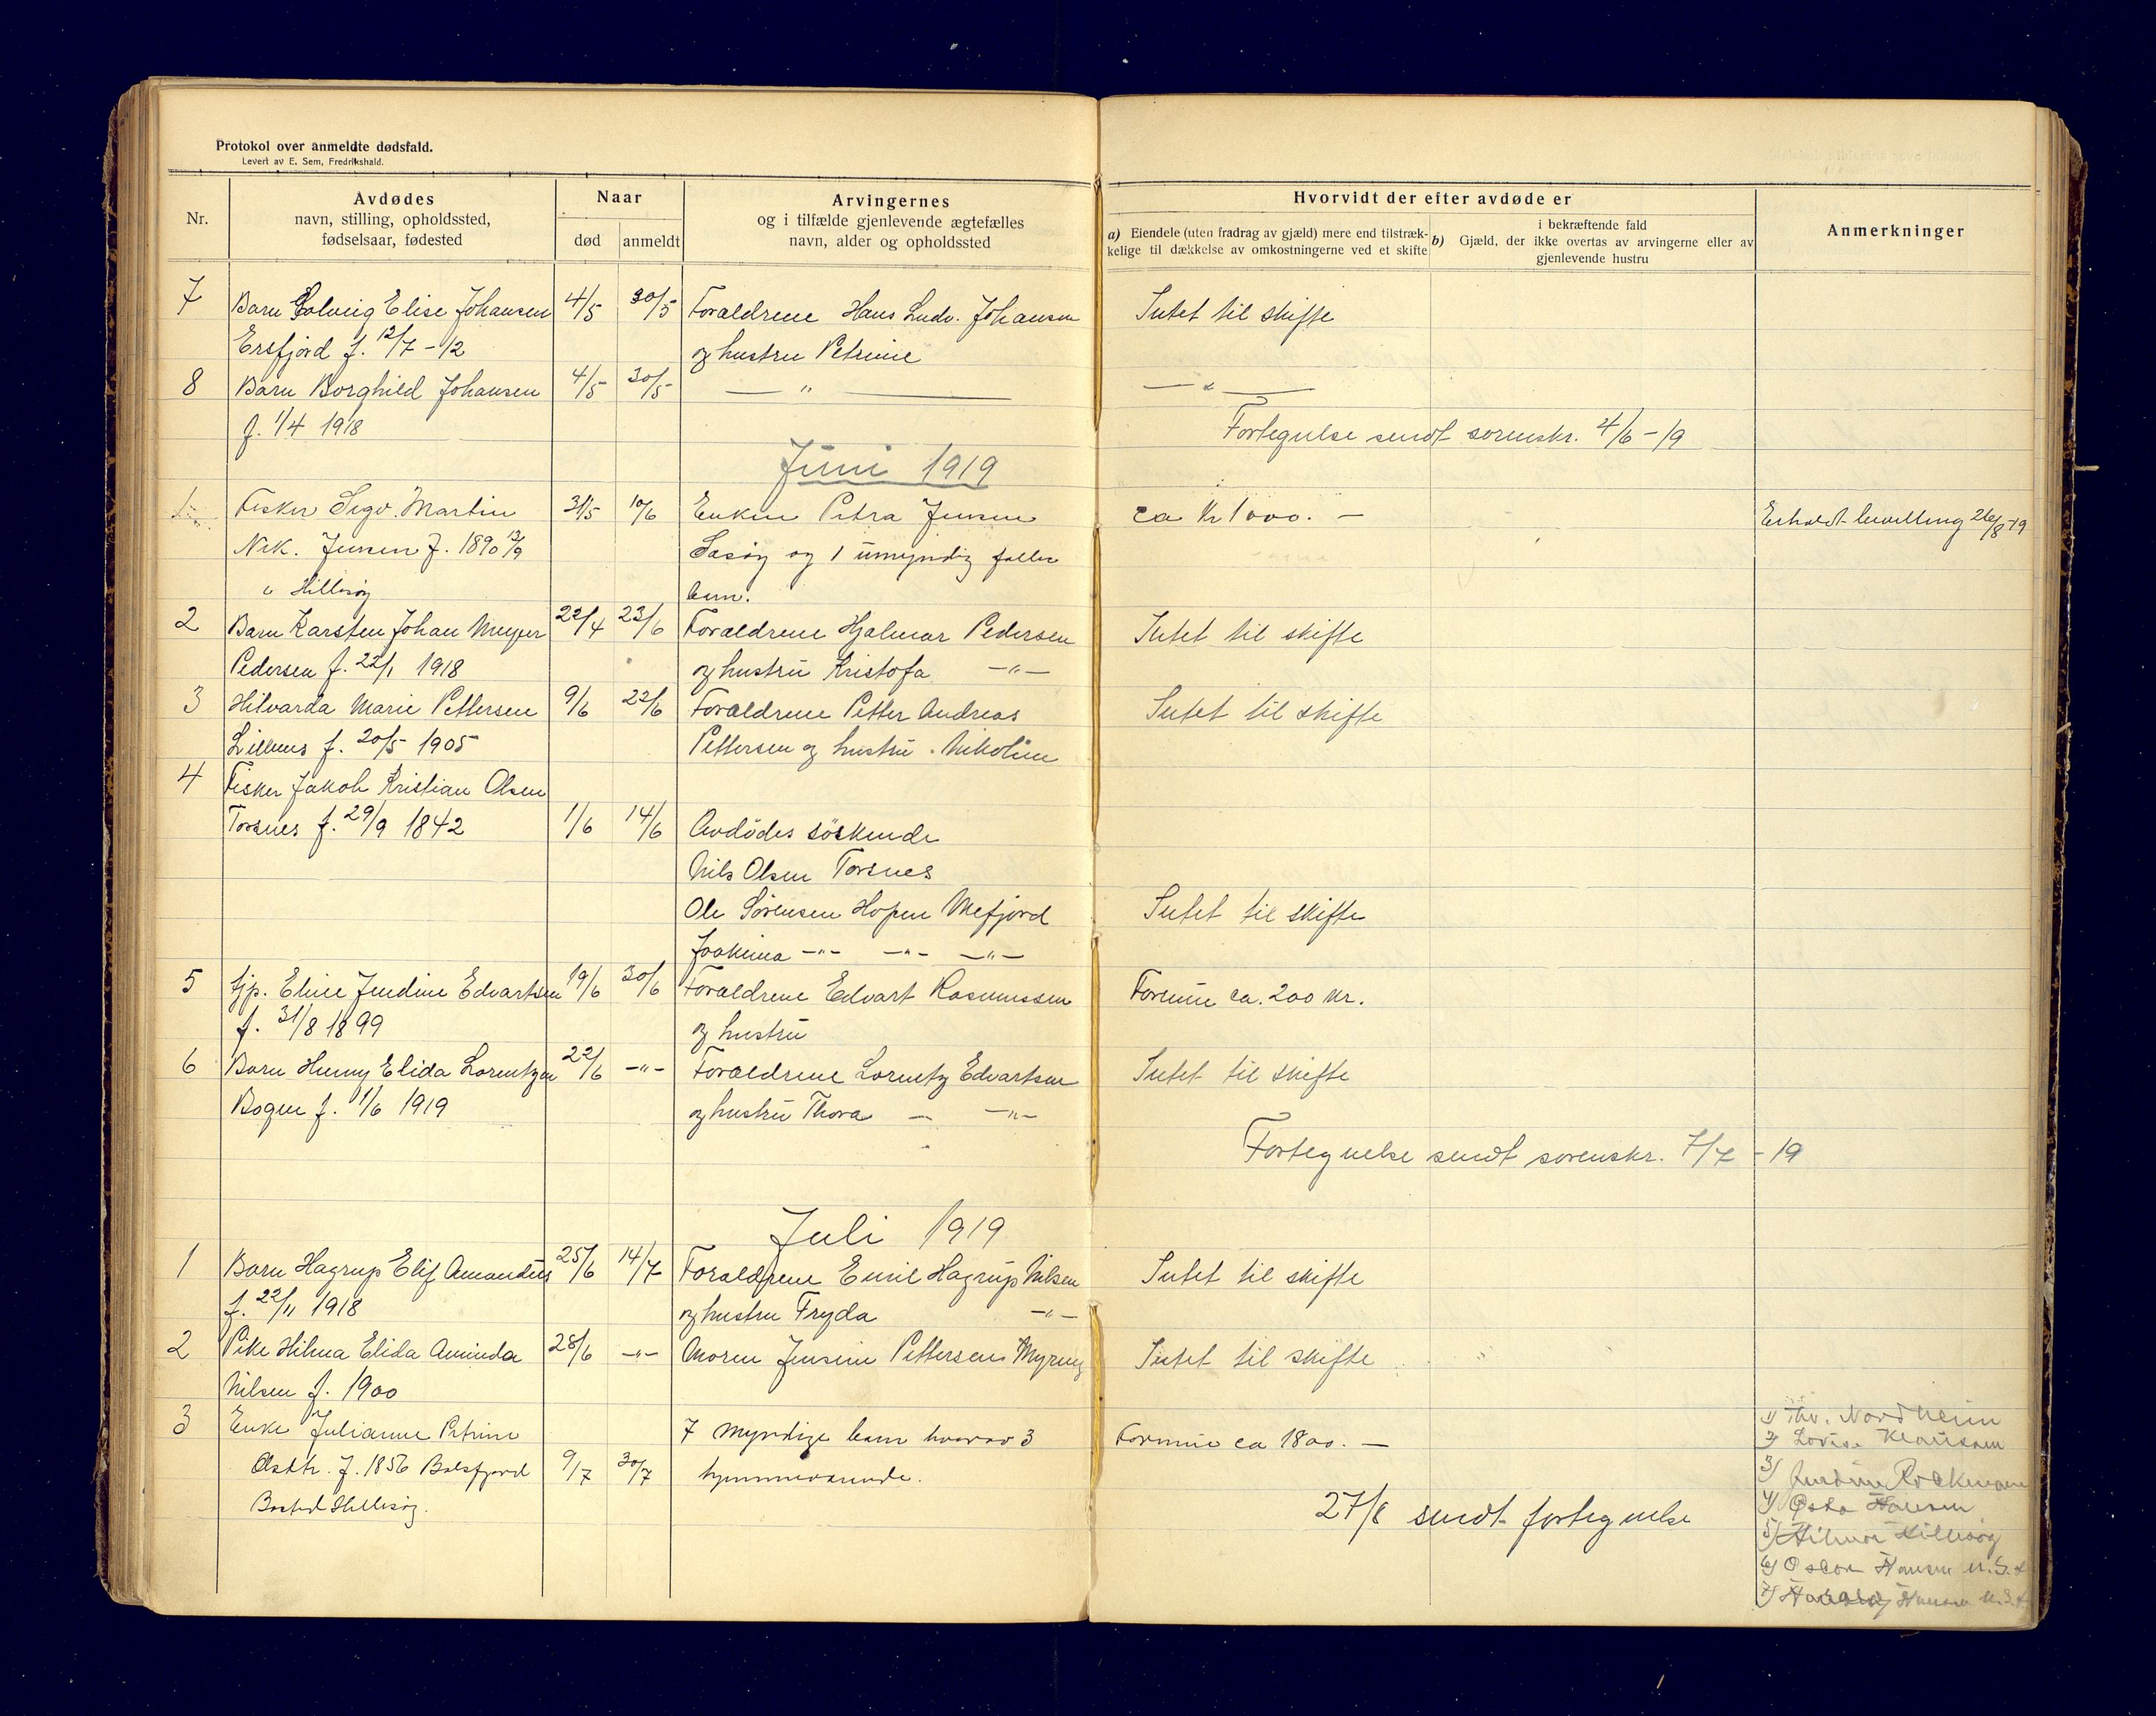 Protokol over anmeldte dødsfald.
Levert av E. Sem, Fredrikshald.
Nr.
Avdødes
navn, stilling, opholdssted,
fødselsaar, fødested
Naar
død
anmeldt
Arvingernes
og i tilfælde gjenlevende ægtefælles
navn, alder og opholdssted
Hvorvidt der efter avdøde er
a) Eiendele (uten fradrag av gjæld) mere end tilstræk-
kelige til dækkelse av omkostningerne ved et skifte
i bekræftende fald
b) Gjæld, der ikke overtas av arvingerne eller av
gjenlevende hustru
Anmerkninger
7 Barn Solveig Elise Johansen 4/5 30/5 Forældrene Hans Ludv. Johansen Intet til skifte
Ersfjord f. 12/7 - 12 og hustru Petrine
8 Barn Borghild Johansen 4/5 30/5 — " — — " —
f. 1/4 1918 Fortegnelse sendt sorenskr. 4/6 - 19
Juni 1919
1 Fisker Sigv. Martin 31/5 10/6 Enken Petra Jensen ca Kr 1000. — Erholdt bevilling 26/8 19
Nik. Jensen f. 1890 Sasøy og 1 umyndig fælles
" Hillesøy barn.
2 Barn Karsten Johan Meyer 22/4 23/6 Forældrene Hjalmar Pedersen Intet til skifte
Pedersen f. 22/1 1918 og hustru Kristofa — " —
3 Hilvarda Marie Pettersen 9/6 22/6 Forældrene Petter Andreas Intet til skifte
f. 20/5 1905 Pettersen og hustru Nikoline
4 Fisker Jakob Kristian Olsen
Torsnes f. 29/9 1842 1/6 14/6 Avdødes søskende
Nils Olsen Torsnes
Ole Sørensen Hopen Mefjord Intet til skifte
Joakima — " — — " — — " —
5 Tjp. Eline Jendine Edvartsen 19/6 30/6 Forældrene Edvart Rasmussen Formue ca. 200 kr.
f. 31/8 1899 og hustru
6 Barn Henny Elida Lorentzen 22/6 — " — Forældrene Lorentz Edvartsen Intet til skifte
Bogen f. 1/6 1919 og hustru Thora — " —
Fortegnelse sendt sorenskr. 7/7 - 19
Juli 1919
1 Barn Hagrup Elif Amandus 25/6 14/7 Forældrene Emil Hagrup Nilsen Intet til skifte
f. 22/11 1918 og hustru Fryda — " —
2 Pike Hilma Elida Aminda 28/6 — " — Moren Jensine Pettersen Intet til skifte
Nilsen f. 1900
3 Enke Julianne Petrine 7 myndige barn hvorav 3 Formue ca 1800. —
f. 1856 Balsfjord 9/7 30/7 hjemmeværende.
Bosted Hillesøy.
27/8 sendt fortegnelse
1) Thv. Nordheim
2) Lovise
3)
4) Hansen
5) Hilmar Hillesøy
6) Oskar Hansen
7) Hansen